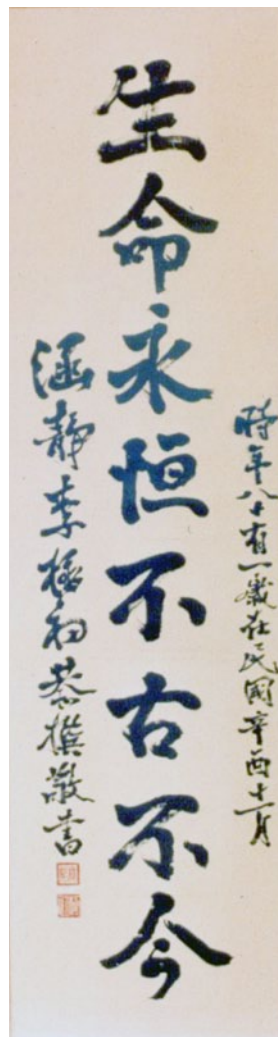 時年八十有一歲在民國辛酉十二月
生命永恒不古不今
涵靜李極初恭撰敬書